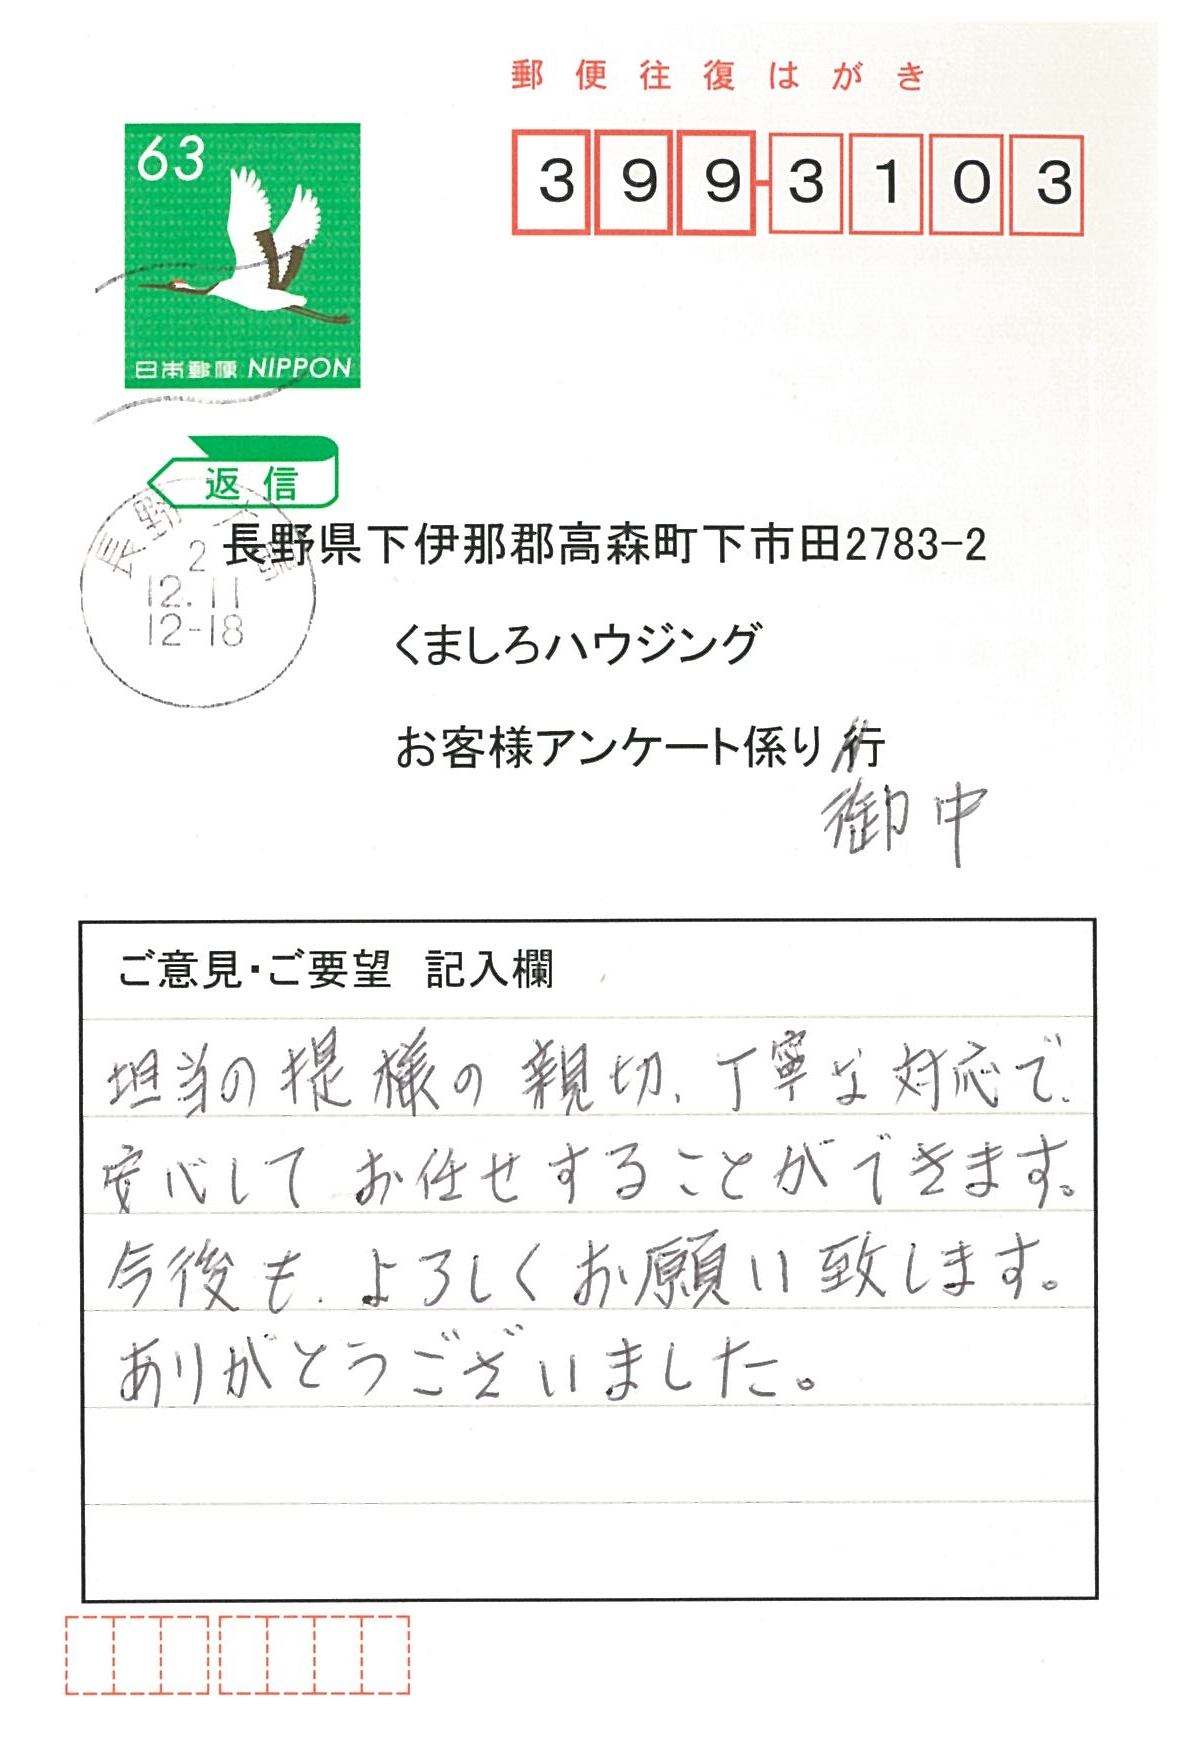 郵便往復はがき
63
399-3103
日本郵便 NIPPON
返信
長野県下伊那郡高森町下市田2783-2
長野
2
12.11
12-18
くましろハウジング
お客様アンケート係り行
御中
ご意見・ご要望 記入欄
担当の堤様の親切、丁寧な対応で、
安心してお任せすることができます。
今後も、よろしくお願い致します。
ありがとうございました。